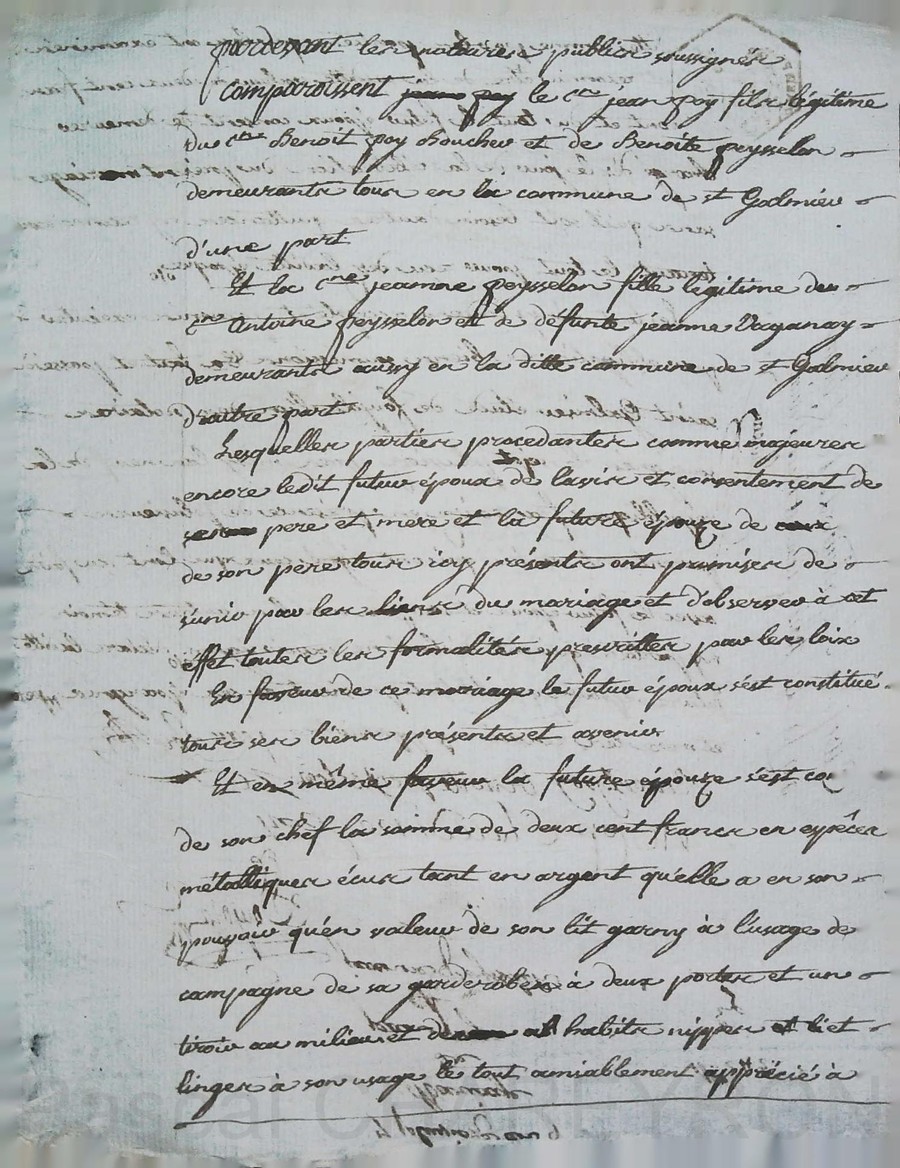 pardevant les notaires publics soussignés
Comparoissent le cen jean poy fils légitime
du cen Benoit poy Boucher et de Benoite peysselon
demeurants tous en la commune de st Galmier
d'une part
Et la cne jeanne peysselon fille légitime du
cen Antoine peysselon et de défunte jeanne Vaganay
demeurants aussy en la ditte commune de st Galmier
d'autre part
Lesquelles parties procedantes comme majeures
encore ledit futur époux de lavis et consentement de
ses pere et mere et la future épouze de
de son père tous icy présents ont promises de
s'unir par les liens du mariage et d'observer à cet
effet toutes les formalités prescrittes par les loix
En faveur de ce mariage le futur époux s'est constitué
tous ses biens présents et avenir
Et en même faveur la future épouze s'est co
de son chef la somme de deux cent francs en espêces
métalliques écus tant en argent qu'elle a en son
pouvoir qu'en valeur de son lit garny à l'usage de
campagne de sa garderobes à deux portes et un
tiroir au milieu et de habits nippes et
linges à son usage le tout amiablement apprécié à